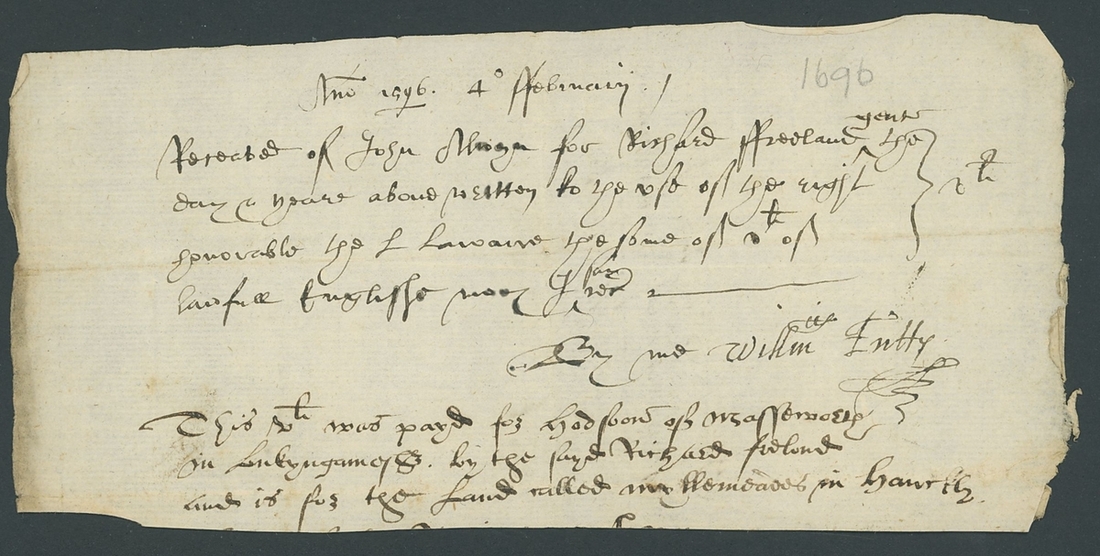 Ano 1596. 4° ffebruarij /
1696
Receved of John for Richard ffreeland gent the
day & yeare above written to the use of the right
honorable the L Lawarre the some of vli of
lawfull Englishe mony I say rec
vli
By me Willm Tutty
This vli was payd for hodsoone of Masseworth
in bukyngamesh. by the sayd Richard frelond
and is for the Land called myllemeades in